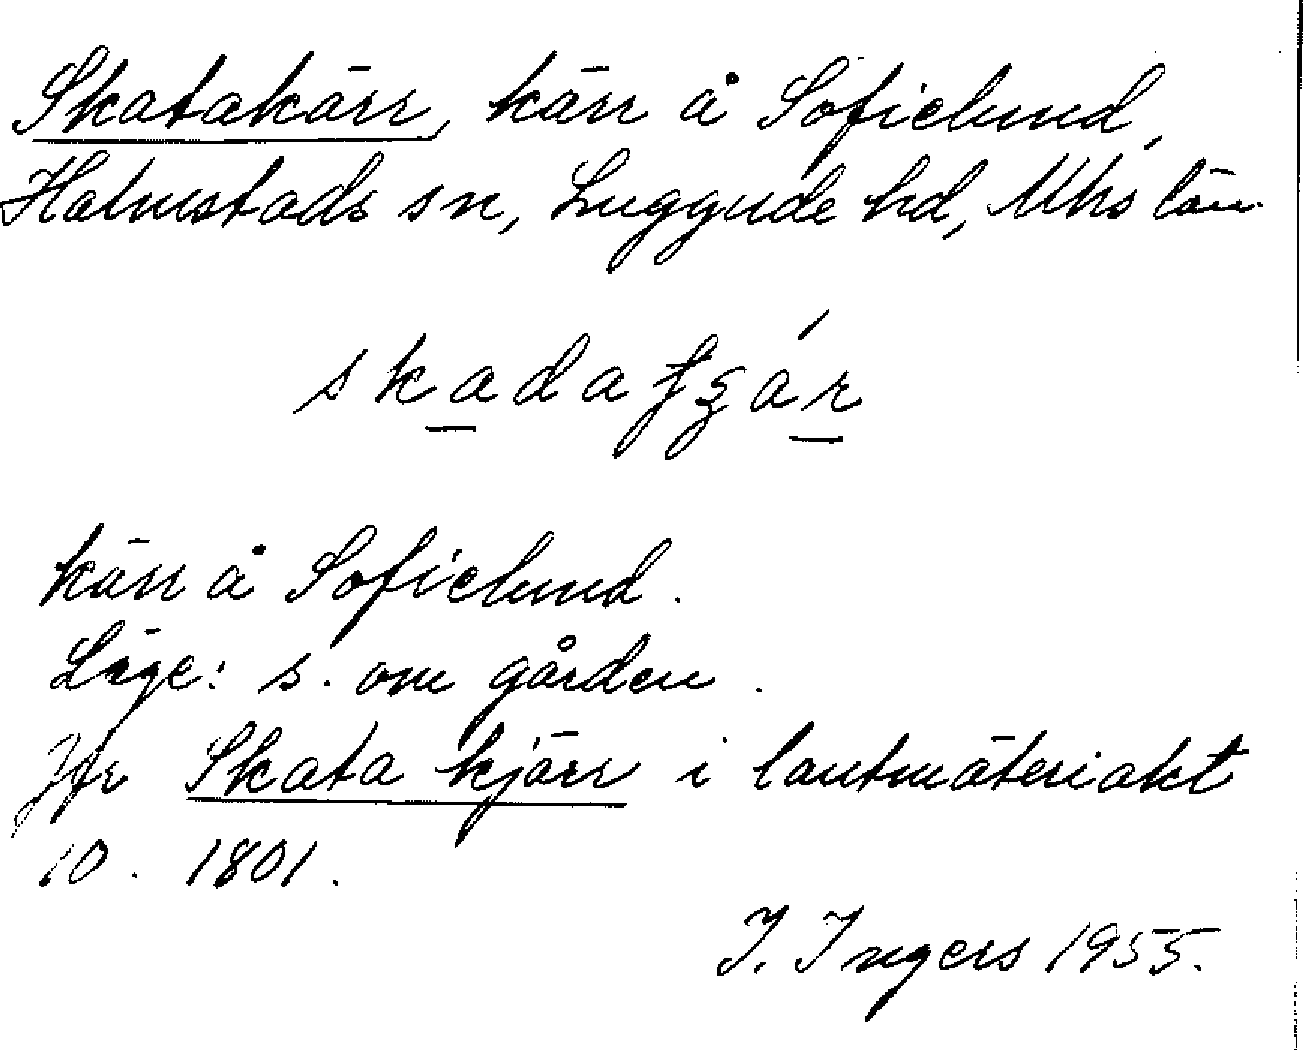 Skatakärr, kärr å Sofielund,
Halmstads sn, Luggude hd, Mhs län.
skadafʒár
kärr å Sofielund.
Läge: s. om gården.
Jfr Skata kjärr i lantmäteriakt
10. 1801.
I. Ingers 1955.